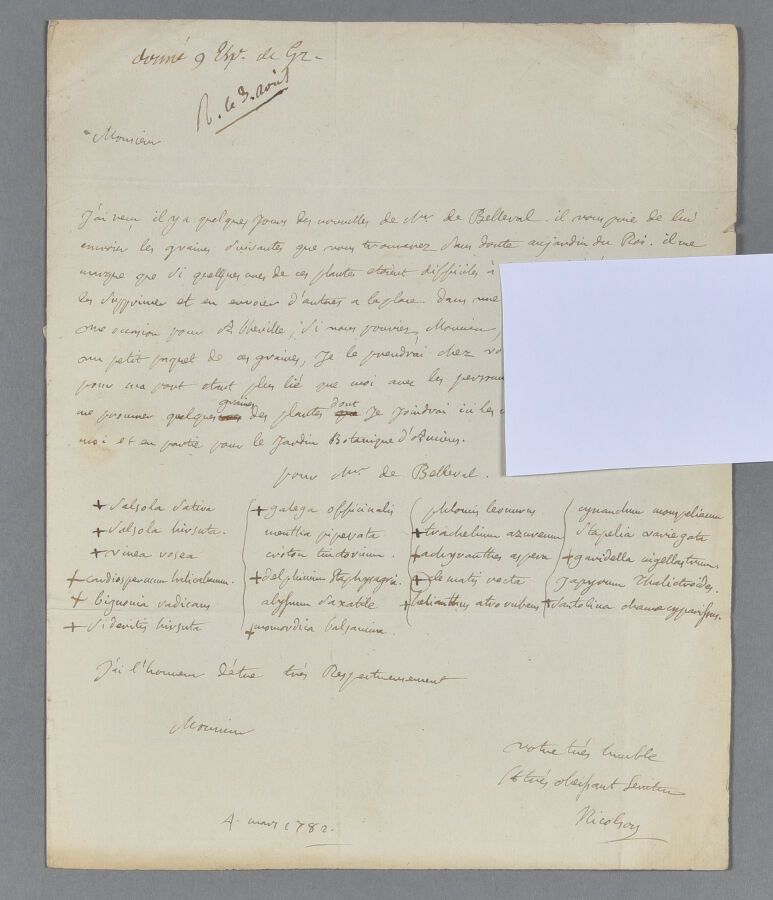 donné 9 Esp. de Gr.
R. le 3. août
Monsieur
J'ai reçu il y a quelques jours des nouvelles de Mr de Belleval. il vous prie de lui
envoier les graines suivantes que vous trouverez sans doute au jardin du Roi. il me
marque que si quelques unes de ces plantes etoient difficiles à
les supprimer et en envoier d'autres a la place. dans une
une occasion pour Abbeville, si vous pouviez, Monsieur,
un petit paquet de ces graines, je le prendrai chez
pour ma part etant plus lié que moi avec les
me procurer quelques graines des plantes dont je joindrai ici les
moi et en partie pour le Jardin Botanique d'Amiens.
pour Mr. de Belleval.
+ salsola sativa + galega officinalis phlomis leonurus cynanchum monspeliacum
+ salsola hirsuta. mentha piperata + trachelium azureum stapelia variegata
+ vinea rosea croton tinctorium. + achyranthes aspera + garidella nigellastrum
+ cardiospermum halicabum. + delphinium staphysagria + clematis recta isopyrum thalictroides.
+ bignonia radicans alyssum saxatile + helianthus atrorubens + santolina chamaecyparissus.
+ sideritis hirsuta + momordica balsamina.
J'ai l'honneur d'être très Respectueusement
Monsieur
votre très humble
et très obeissant serviteur
Nicolson
4. mars 1782.